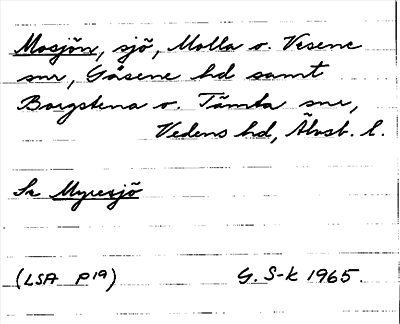 Mosjön, sjö, Molla o. Vesene
snr, Gäsene hd samt
Borgstena o. Tämta snr,
Vedens hd, Älvsb. l.
Se Myresjö
(LSA P19) G. S-k 1965.